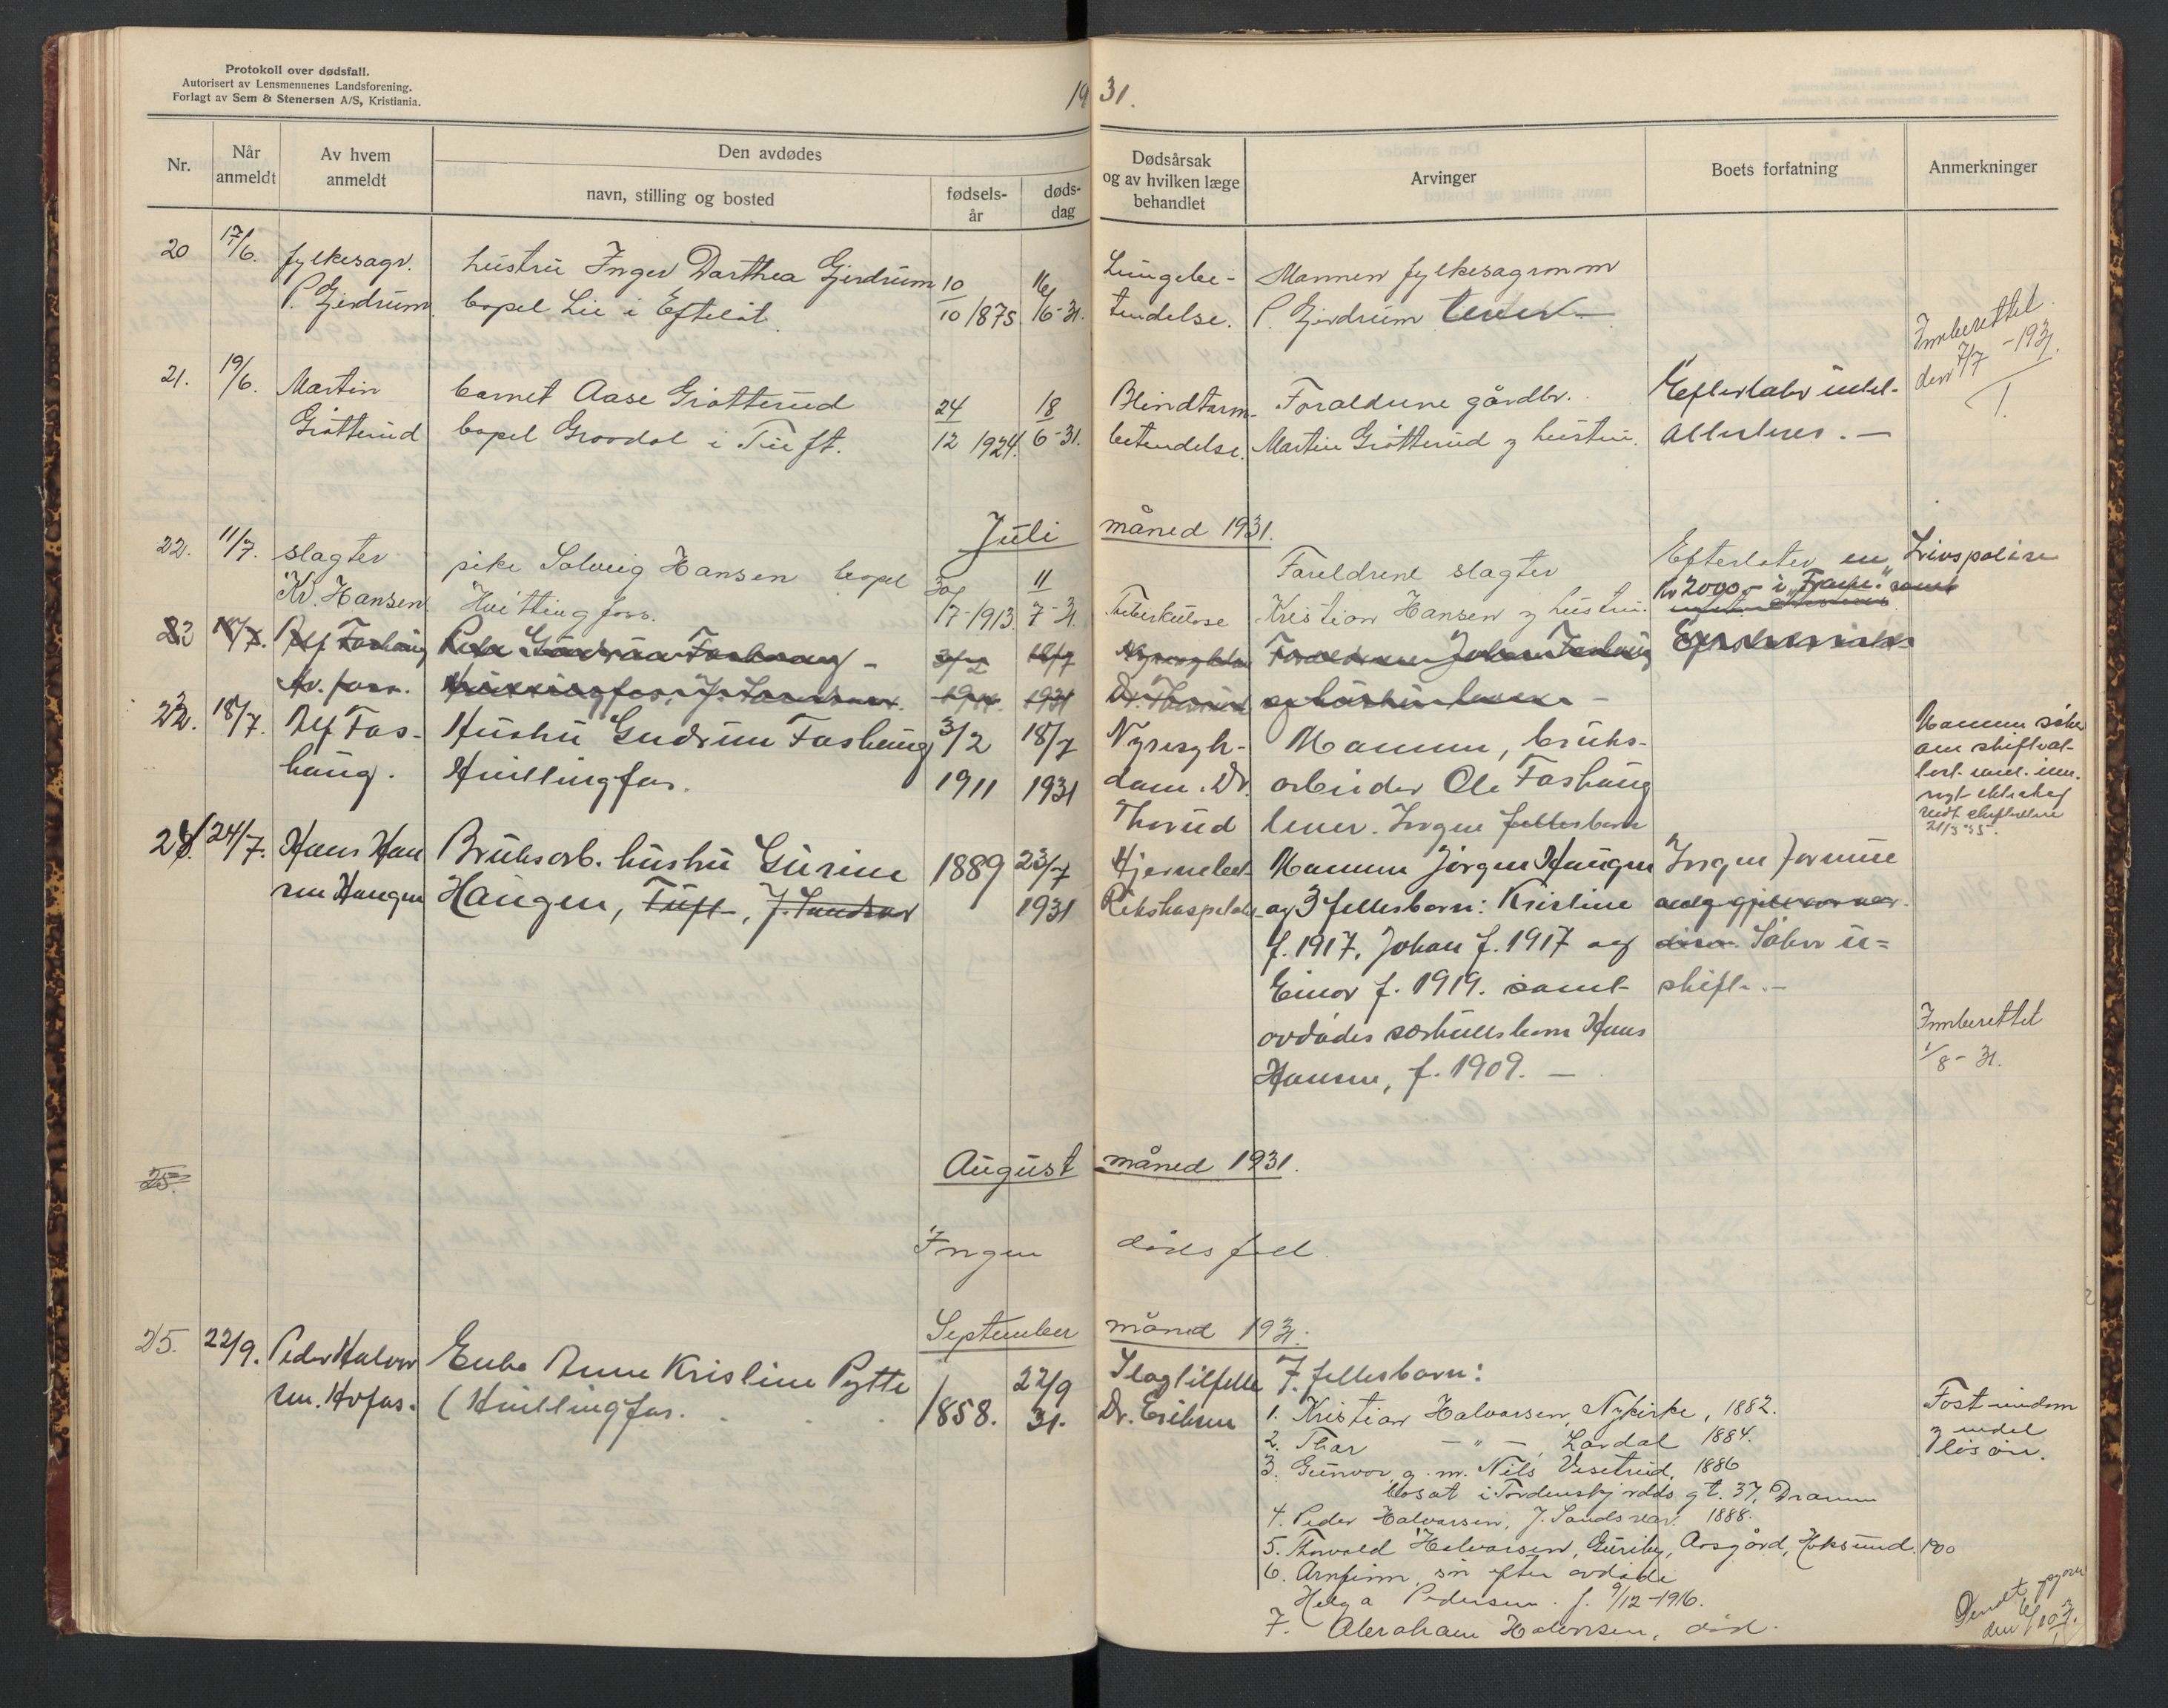 Protokoll over dødsfall.
Autorisert av Lensmennenes Landsforening.
Forlagt av Sem & Stenersen A/S, Kristiania.
1931.
Nr.
Når anmeldt
Av hvem anmeldt
Den avdødes
navn, stilling og bosted
fødsels-år
døds-dag
Dødsårsak og av hvilken læge behandlet
Arvinger
Boets forfatning
Anmerkninger
20 17/6. fylkesagr. hustru Inger Dorthea Gjerdrum 10 16/ Lungebe- Mannen fylkesagronom
P. Gjerdrum bopel Lie i Efteløt 10 1875 6-31. tendelse. P. Gjerdrum lever
Innberettet
den 7/7 -1931.
21. 19/6. Martin barnet Aase Grøtterud 24 18 Blindtarm- Foreldrene gårdbr. Efterlater intet-
Grøtterud bopel Grosdal i Tuft. 12 1924. 6-31. betendelse. Martin Grøtterud og hustru.
Juli måned 1931.
22. 11/7. slagter pike Solveig Hansen bopel 30/ 11 Foreldrene slagter Efterlater en Livspolise
Kr. Hansen Hvittingfoss. 7-1913. 7-31. Tuberkulose Kristian Hansen og hustru. Kr 2000,- i
23 18/7.
Hv.foss. 1931
22. 18/7. Alf Fos- Hustru Gudrun Foshaug 3/2 18/7 Nyresyk- Mannen, bruks- Mannen søker
haug. Hvittingfos. 1911 1931 dom. Dr. arbeider Ole Foshaug om skifteat-
Thorud lever. Ingen fellesbarn
21/3 35.
24/7. Hans Han Bruksarb. hustru Gurine 1889 23/7 Mannen Jørgen Haugen Ingen formue
sen Haugen Haugen, Tuft, J. Sandsvær 1931 Rikshospitalet og 3 fellesbarn: Kristine
f. 1917, Johan f. 1917 og Søker u=
Einar f. 1919. samt skifte.-
avdødes særkullsbarn Hans
Hansen, f. 1909. -
Innberettet
1/8-31.
25.
August måned 1931.
Ingen dødsfall.
September måned 1931.
25. 22/9. Peder Halvor Enke Anne Kristine Pytte 22/9 Slagtilfelle 7 fellesbarn:
sen. Hvfos. (Hvittingfos. 1858. 31. Dr. Eriksen 1. Kristian Halvorsen, Nykirke, 1882. Fast eiendom
2. Thor - " - , Lardal 1884.
og endel
løsøre.
3. Gunvor g. m. Nils Visetrud, 1886
bosat i Tordenskjolds gt. 37, Drammen
4. Peder Halvorsen, J. Sandsvær. 1888.
5. Thorvald Halvorsen, Guriby, Aasgård, Hoksund. 1900
6. Arnfinn, søn efter avdøde
Helga Pedersen. f. 9/12-1916.
7. Abraham Halvorsen, død.
Sendt
den 6/10 31.